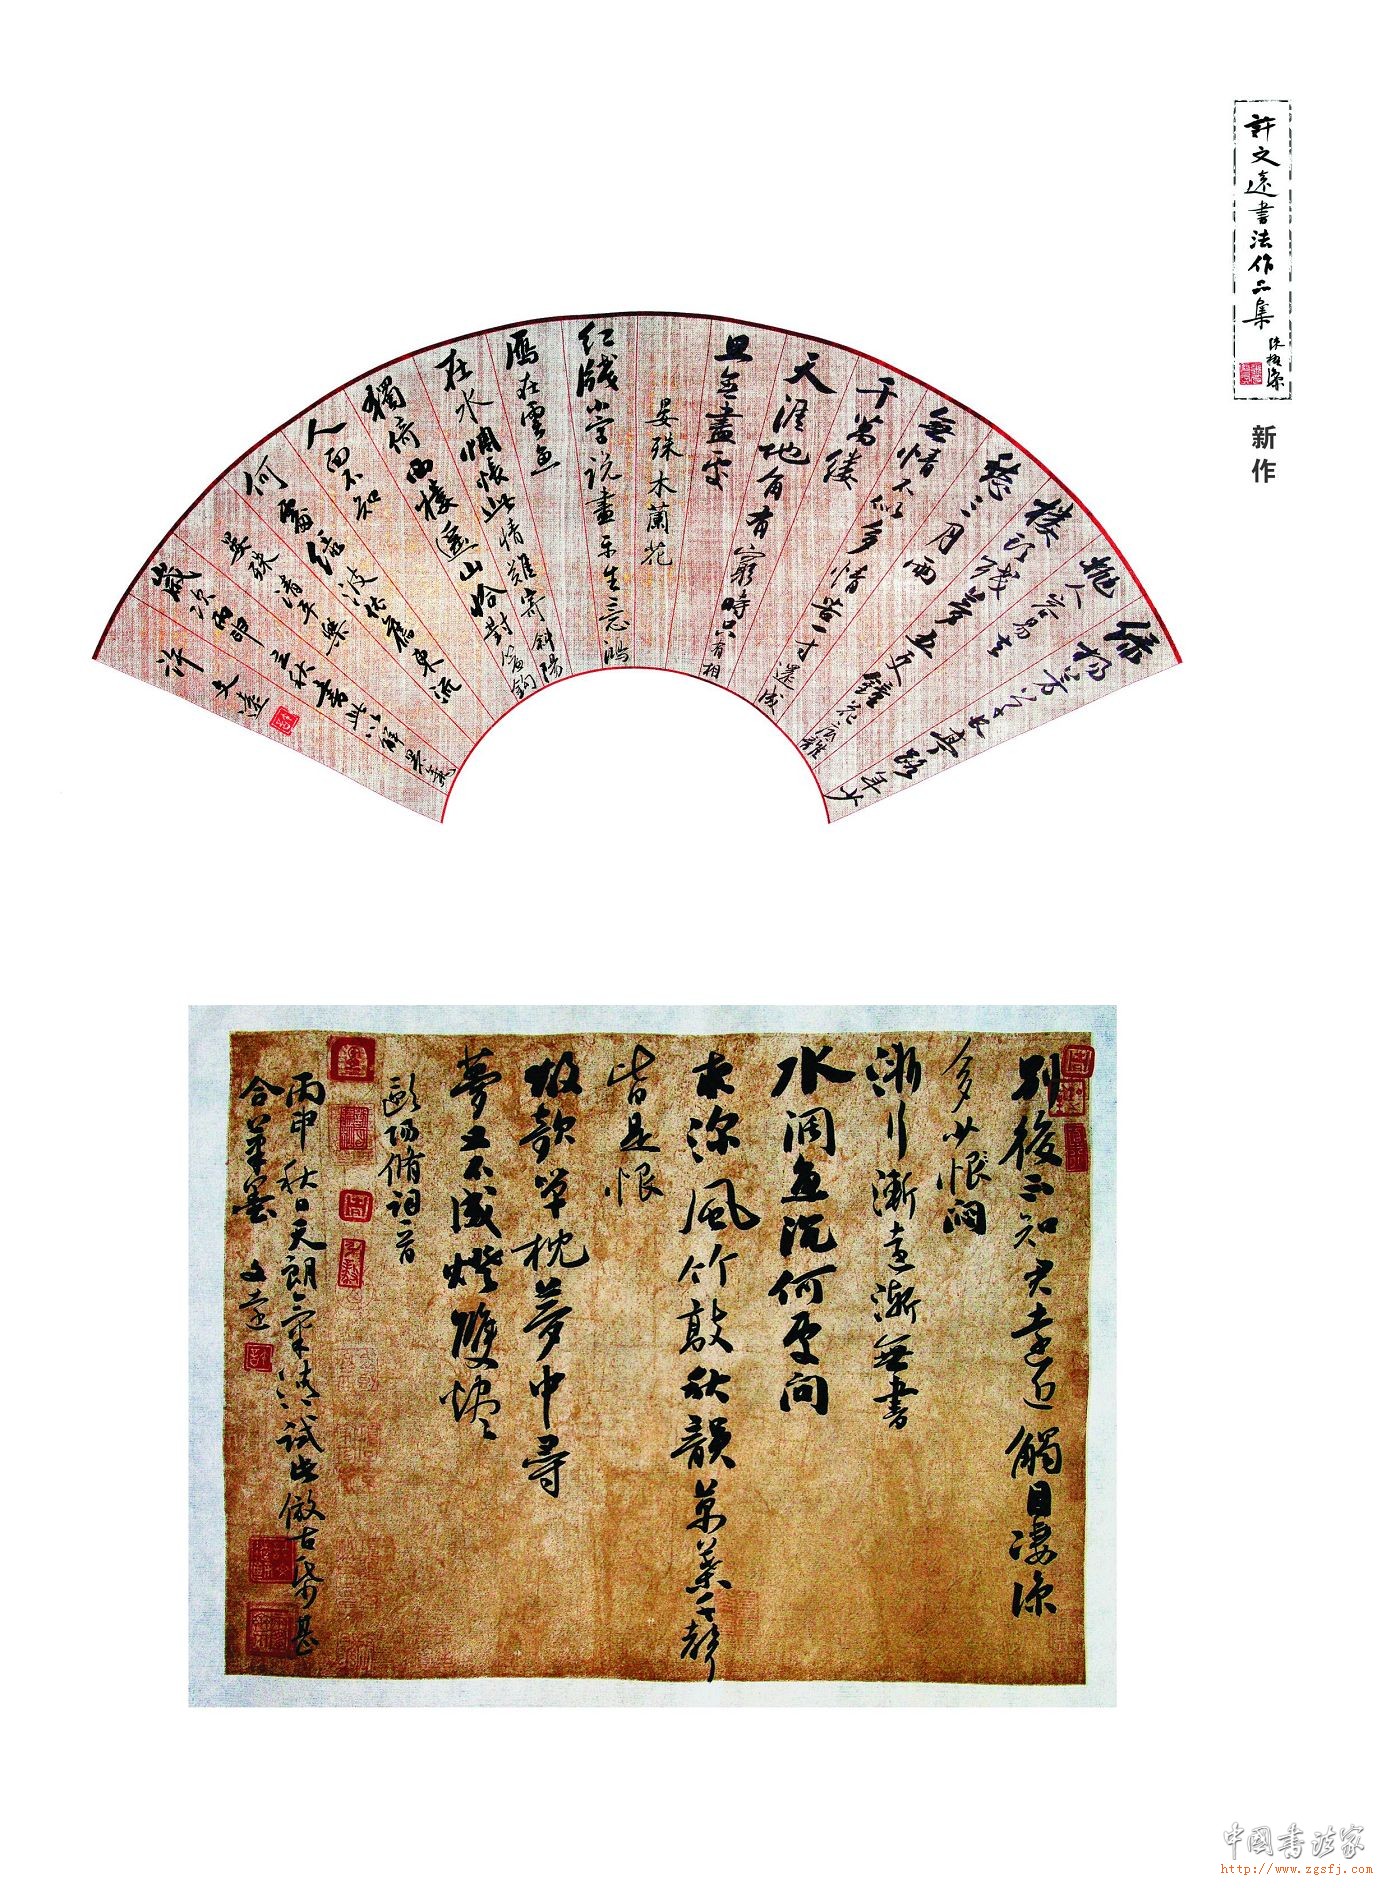 許文遠書法作品集
陳振濂
新作
綠楊芳草長亭路年少
抛人容易去
樓頭殘夢五更鐘花底離
愁三月雨
無情不似多情苦一寸還成
千萬縷
天涯地角有窮時只有相
思無盡處
晏殊木蘭花
紅牋小字説盡平生意鴻
雁在雲魚
在水惆悵此情難寄斜陽
獨倚西樓遙山恰對簾鉤
人面不知
何處綠波依舊東流
晏殊清平樂
歲次丙申立秋書此以解
許文遠
別後不知君遠近觸目淒涼
多少恨悶
漸行漸遠漸無書
水闊魚沉何處問
夜深風竹敲秋韻萬葉千聲
皆是恨
故欹單枕夢中尋
夢又不成燈雙燼
歐陽脩詞一首
丙申秋日天朗氣清試此倣古紙甚
合筆墨 文遠
中国書法家
http://www.zgsfj.com